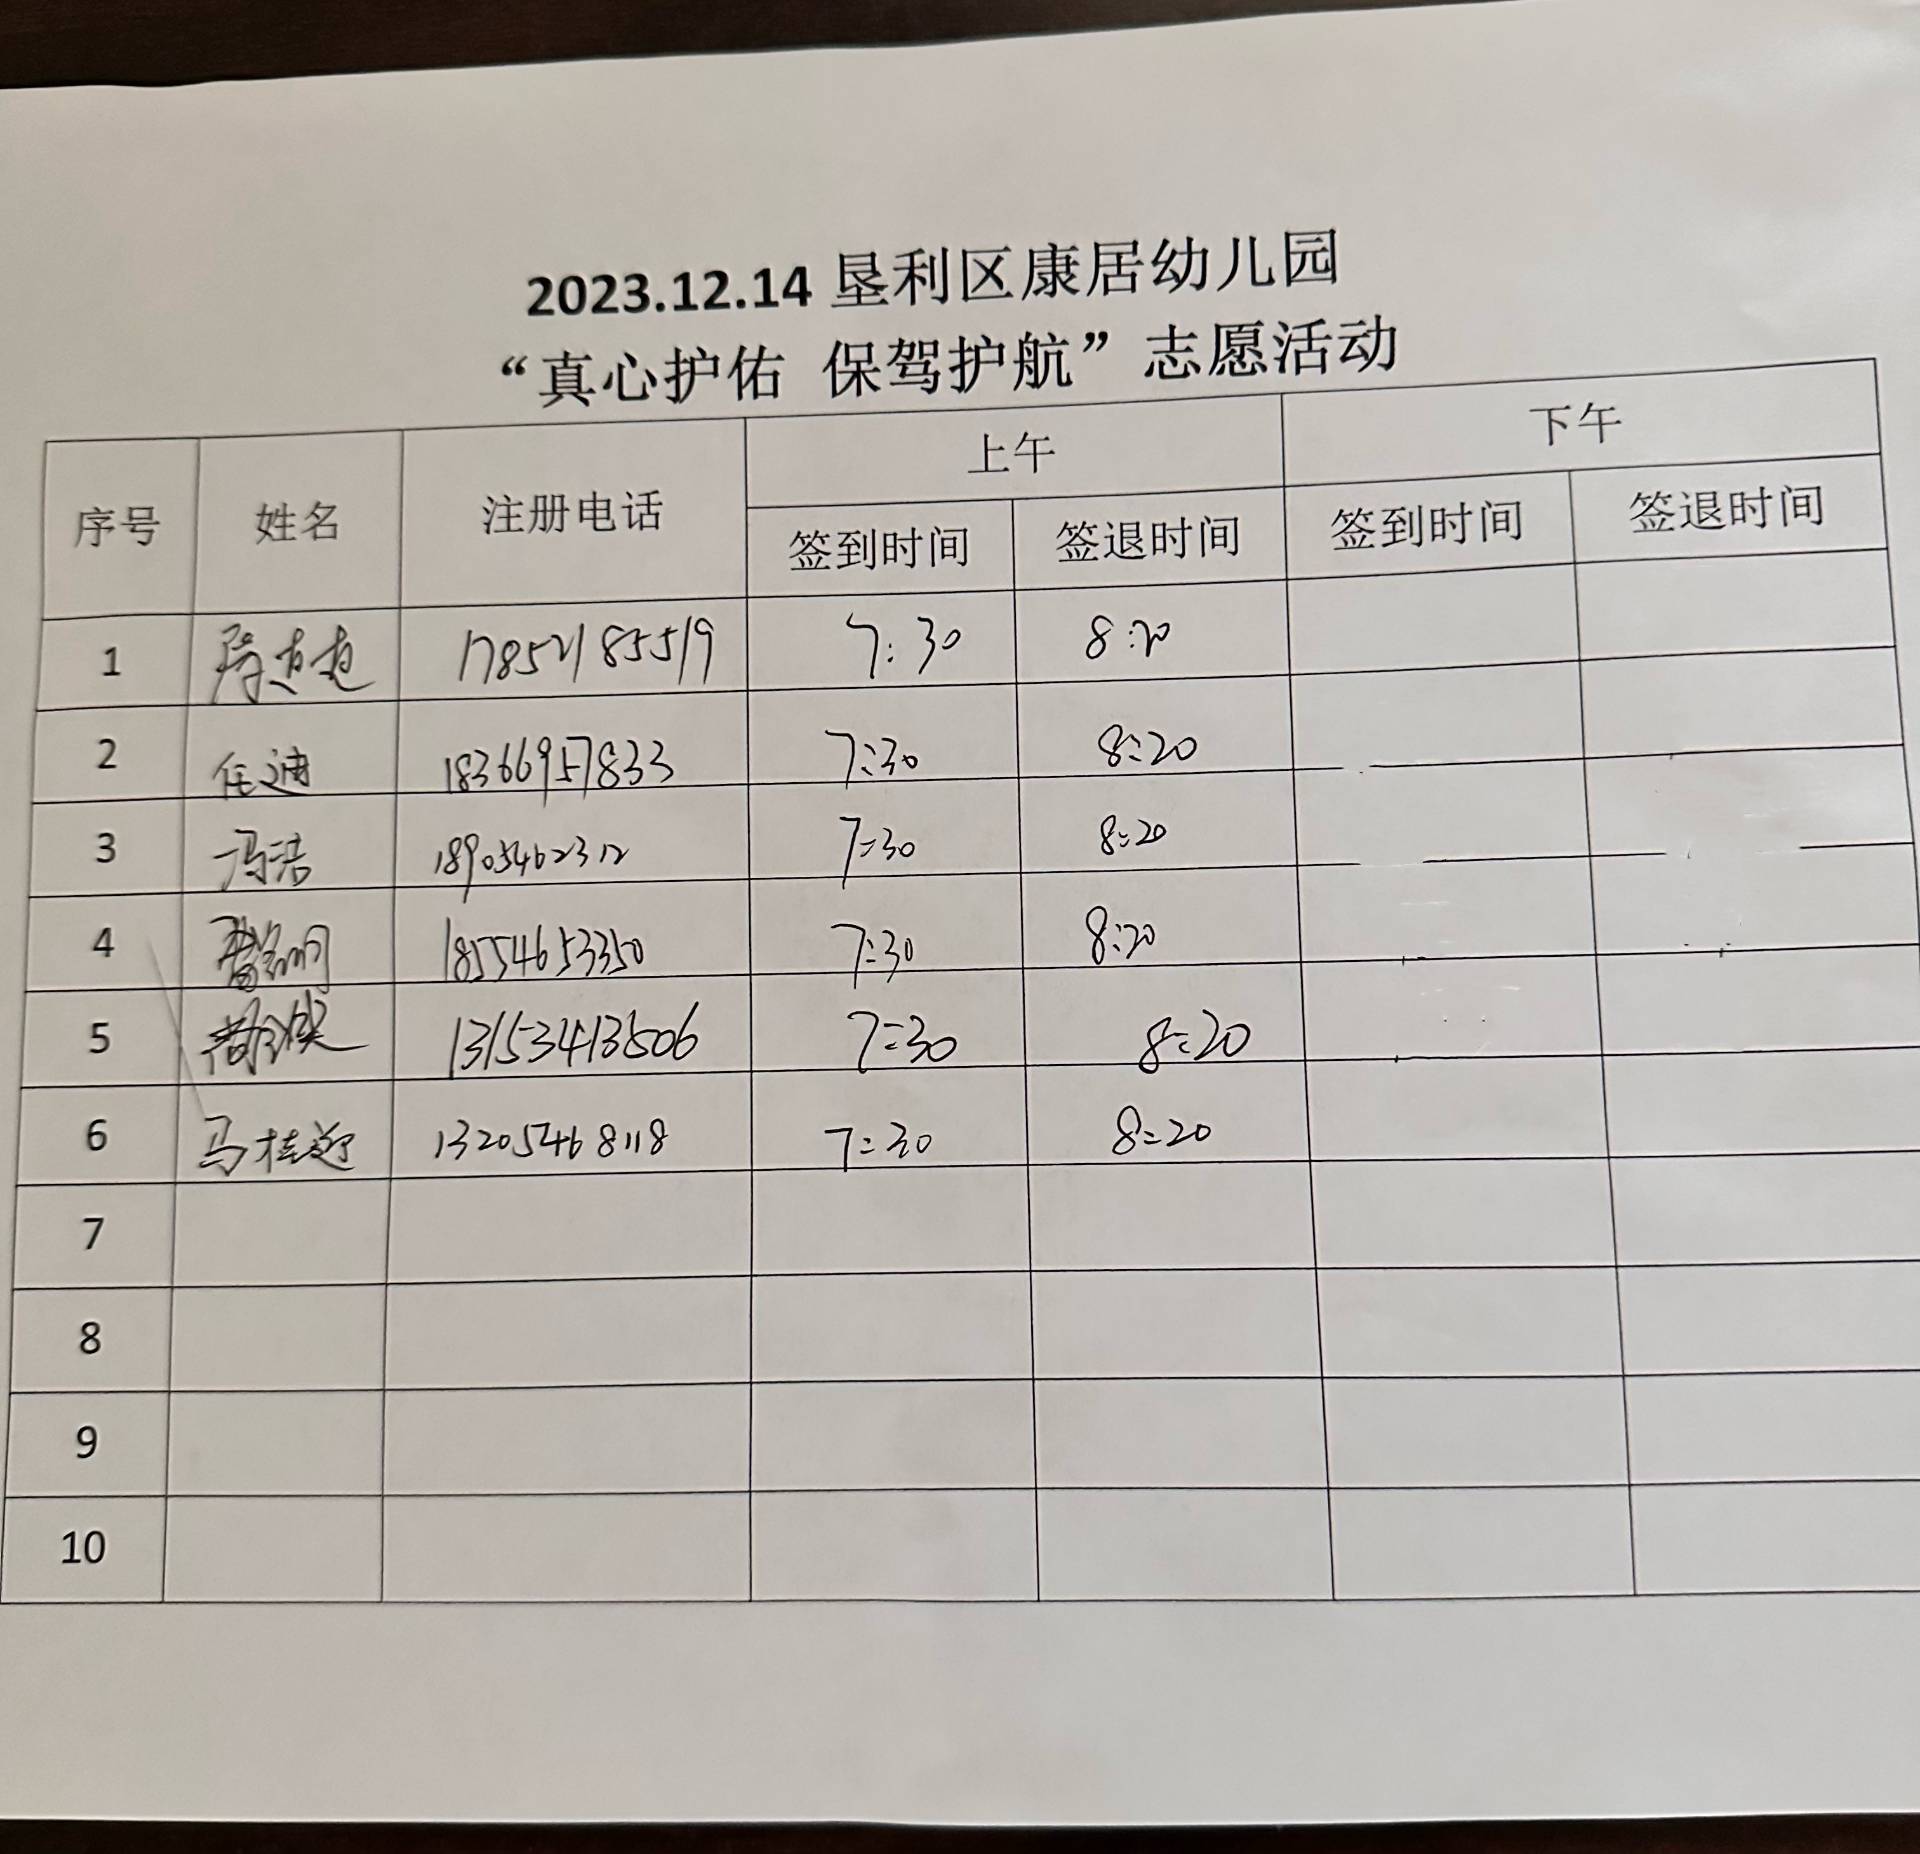 2023.12.14 垦利区康居幼儿园
“真心护佑 保驾护航”志愿活动
序号 姓名 注册电话 上午 下午
签到时间 签退时间 签到时间 签退时间
1 17852185519 7:30 8:20
2 任迪 18366957833 7:30 8:20
3 冯洁 18905462312 7:30 8:20
4 18554653350 7:30 8:20
5 13153413506 7:30 8:20
6 马桂迎 13205468118 7:30 8:20
7
8
9
10